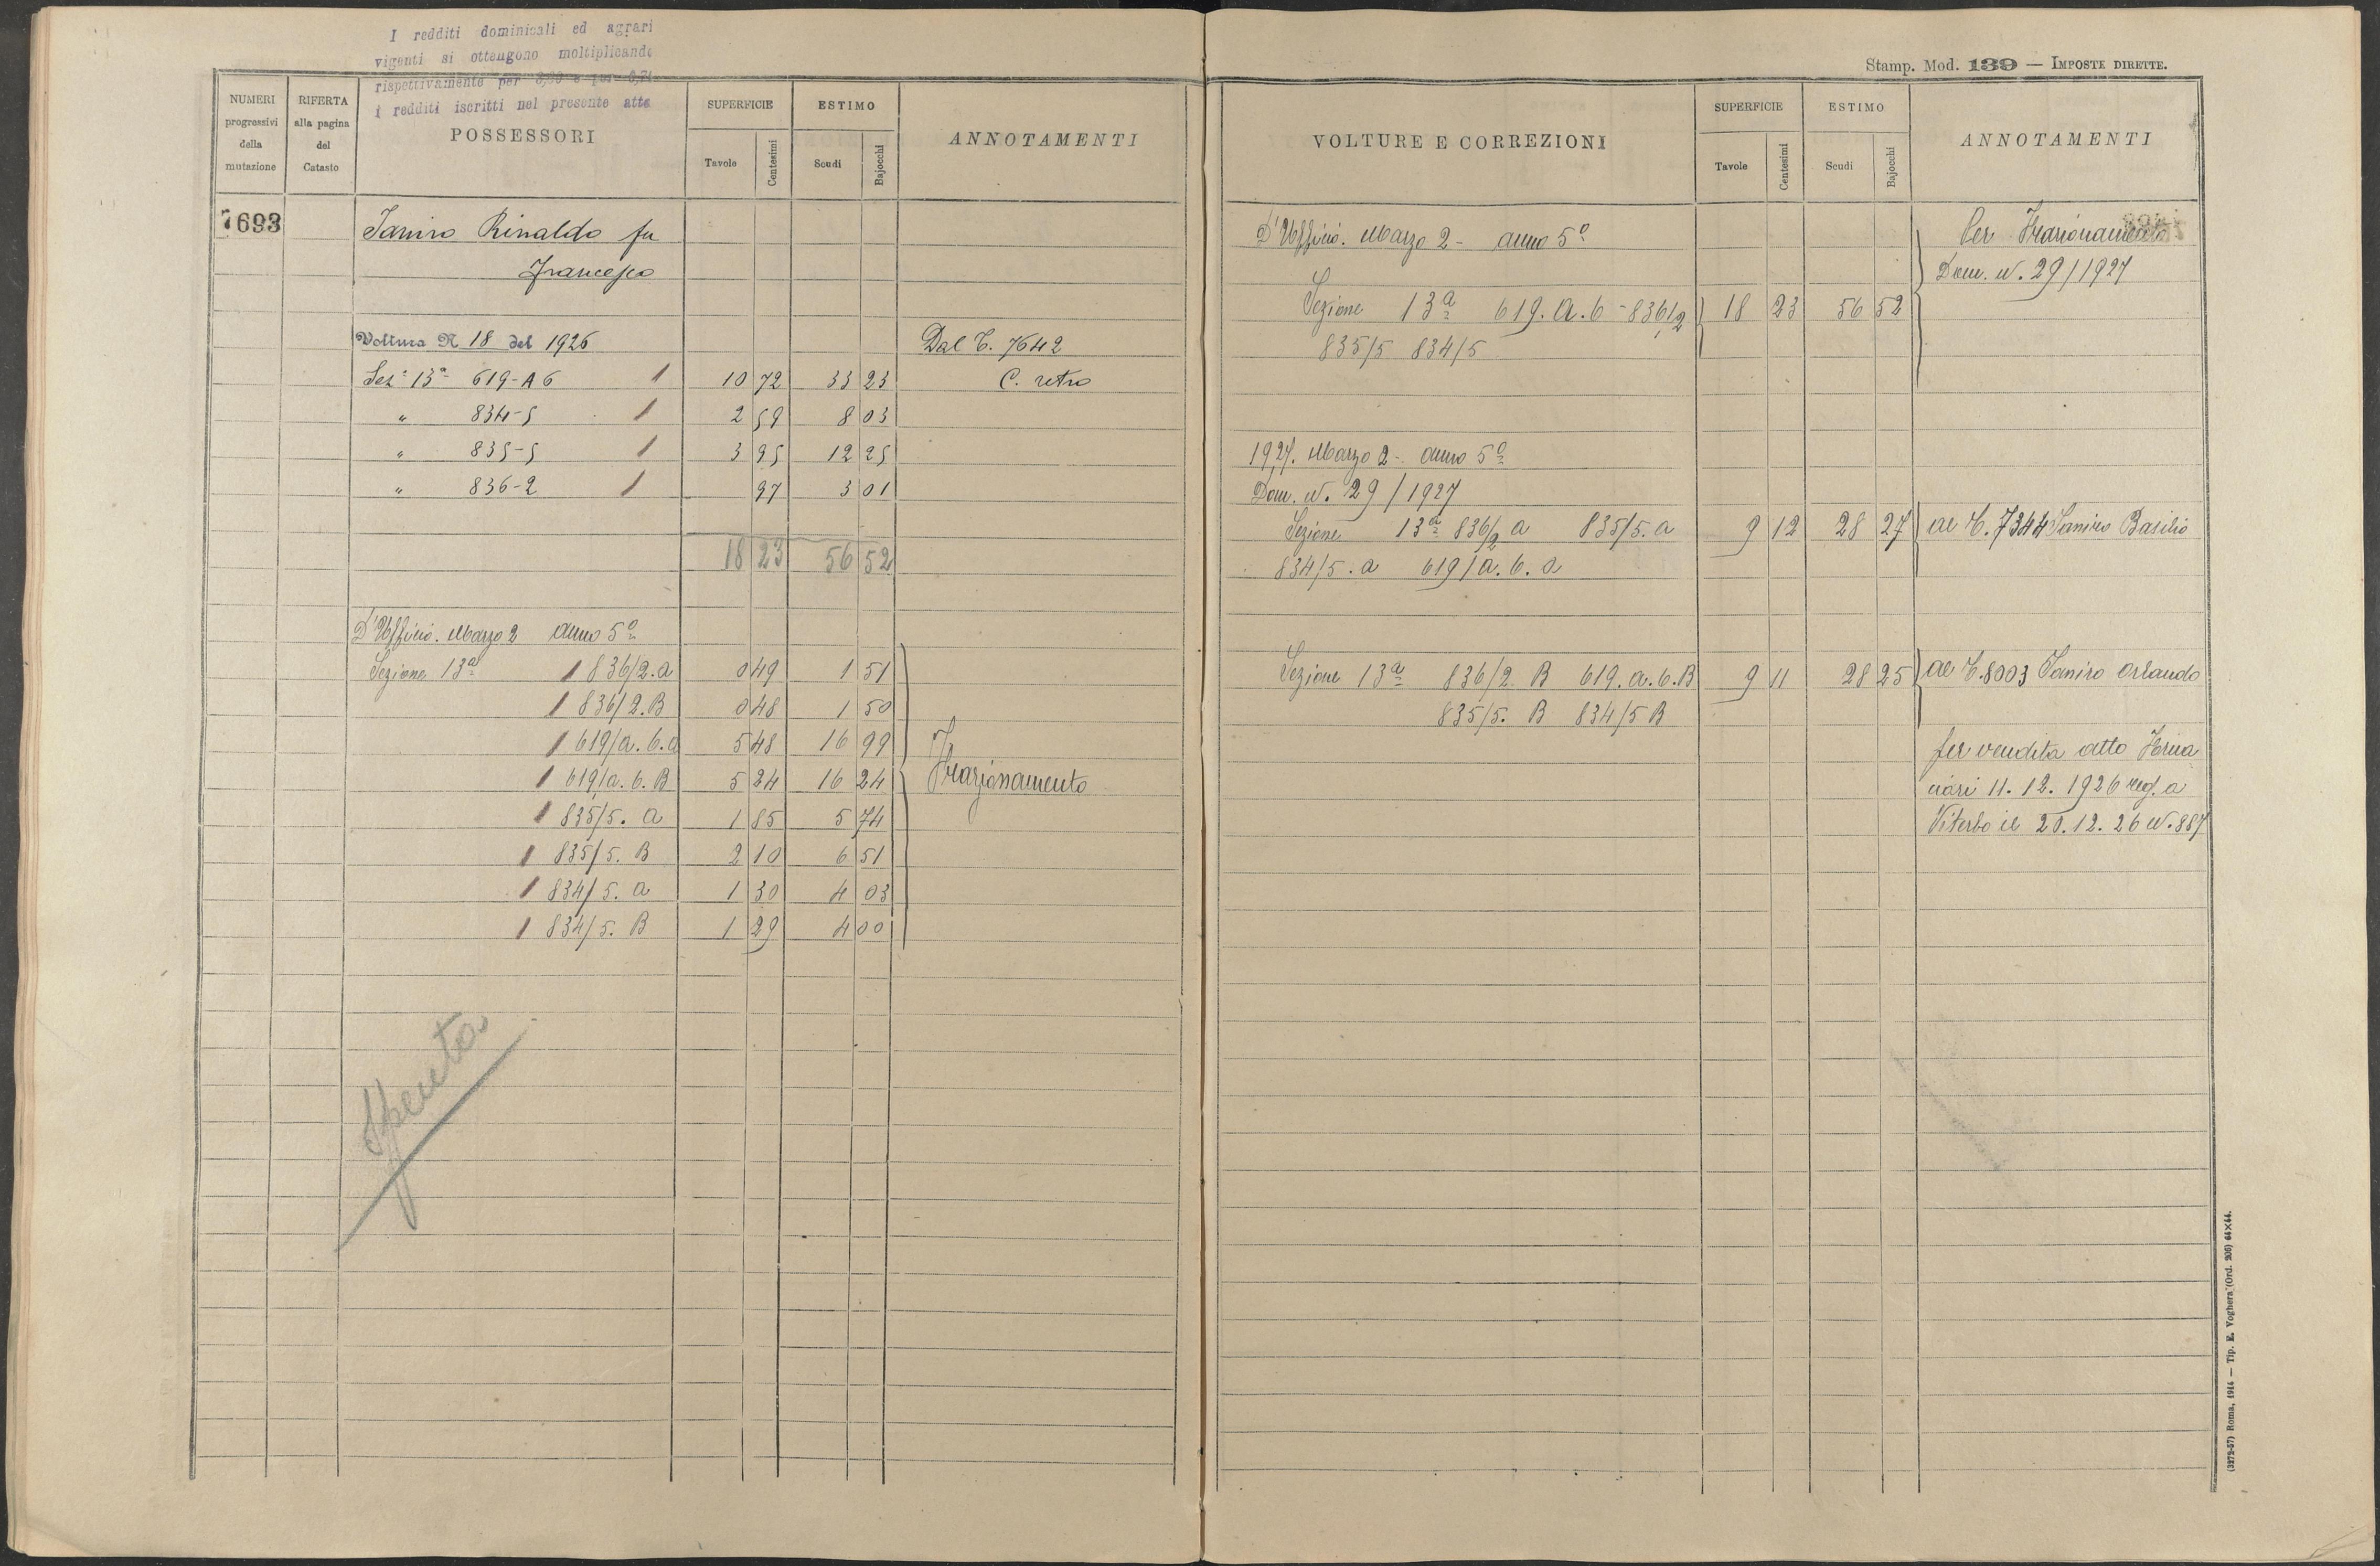 I redditi dominicali ed agrari
vigenti si ottengono moltiplicando
rispettivamente per
i redditi iscritti nel presente atto
NUMERI progressivi della mutazione
RIFERTA alla pagina del Catasto
POSSESSORI
SUPERFICIE
Tavole Centesimi
ESTIMO
Scudi Bajocchi
ANNOTAMENTI
7693 Janiro Rinaldo fu
Francesco
Voltura N 18 del 1926 Dal T. 7642
Sez.e 13a 619-A6 1 10 72 33 23 C. retro
" 834-5 1 2 59 8 03
" 835-5 1 3 95 12 25
" 836-2 1 97 3 01
18 23 56 52
D'Ufficio. Marzo 2 anno 5o
Sezione 13a 1 836/2.a 0 49 1 51
1 836/2.B 0 48 1 50
1 619/a.6.a 5 48 16 99
1 619/a.6.B 5 24 16 24 Frazionamento
1 835/5. a 1 85 5 74
1 835/5. B 2 10 6 51
1 834/5. a 1 30 4 03
1 834/5. B 1 29 4 00
Spenta
Stamp. Mod. 139 — IMPOSTE DIRETTE.
VOLTURE E CORREZIONI
SUPERFICIE
Tavole Centesimi
ESTIMO
Scudi Bajocchi
ANNOTAMENTI
D'Ufficio. Marzo 2 - anno 5o Per Frazionamento
Dom. N. 29/1927
Sezione 13a 619.a.6 - 836/2 18 23 56 52
835/5 834/5
1927. Marzo 2 - anno 5o
Dom. N. 29/1927
Sezione 13a 836/2 a 835/5.a 9 12 28 27 al T. 7344 Janiro Basilio
834/5.a 619/a.6.a
Sezione 13a 836/2 B 619.a.6.B 9 11 28 25 al T. 8003 Janiro Orlando
835/5. B 834/5 B
per vendita atto
11.12.1926 reg. a
Viterbo il 20.12.26 N. 887
(3272-57) Roma, 1914 — Tip. E. Voghera (Ord. 206) 64×44.